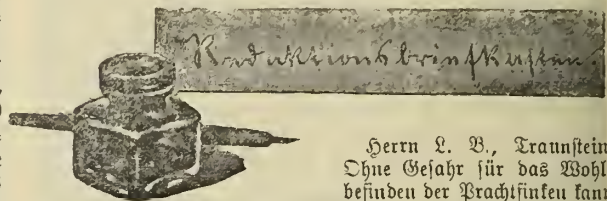 Redaktionsbriefkasten.
Herrn L. B., Traunstein
Ohne Gefahr für das Wohl
befinden der Prachtfinken kann